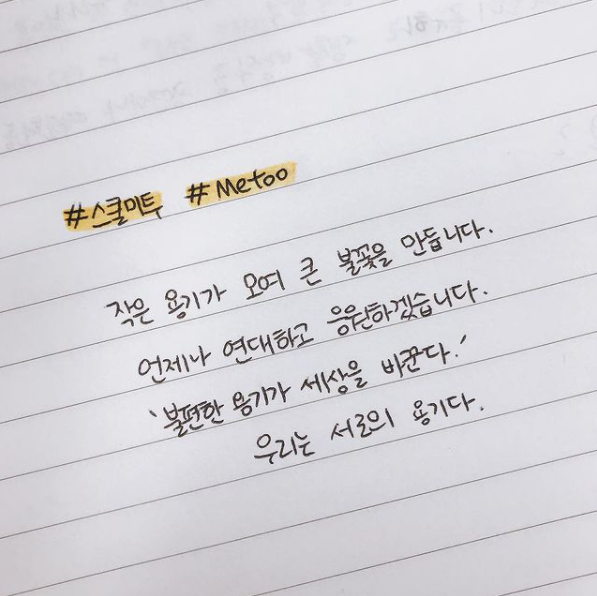 #스쿨미투 #Metoo
작은 용기가 모여 큰 불꽃을 만듭니다.
언제나 연대하고 응원하겠습니다.
'불편한 용기가 세상을 바꾼다.'
우리는 서로의 용기다.